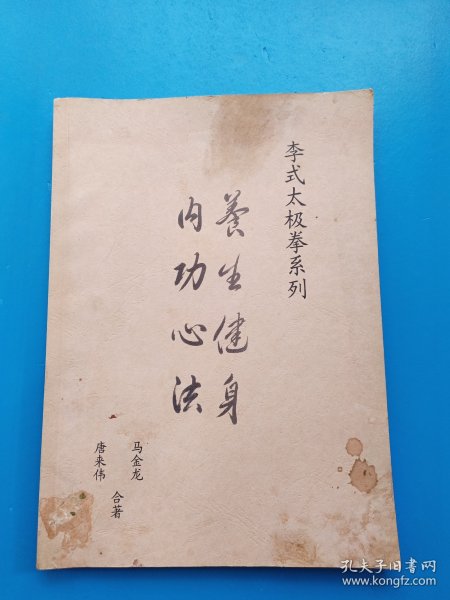 李式太极拳系列
養生健身
内功心法
马金龙
唐来伟
合著
孔夫子旧书网
www.kongfz.com